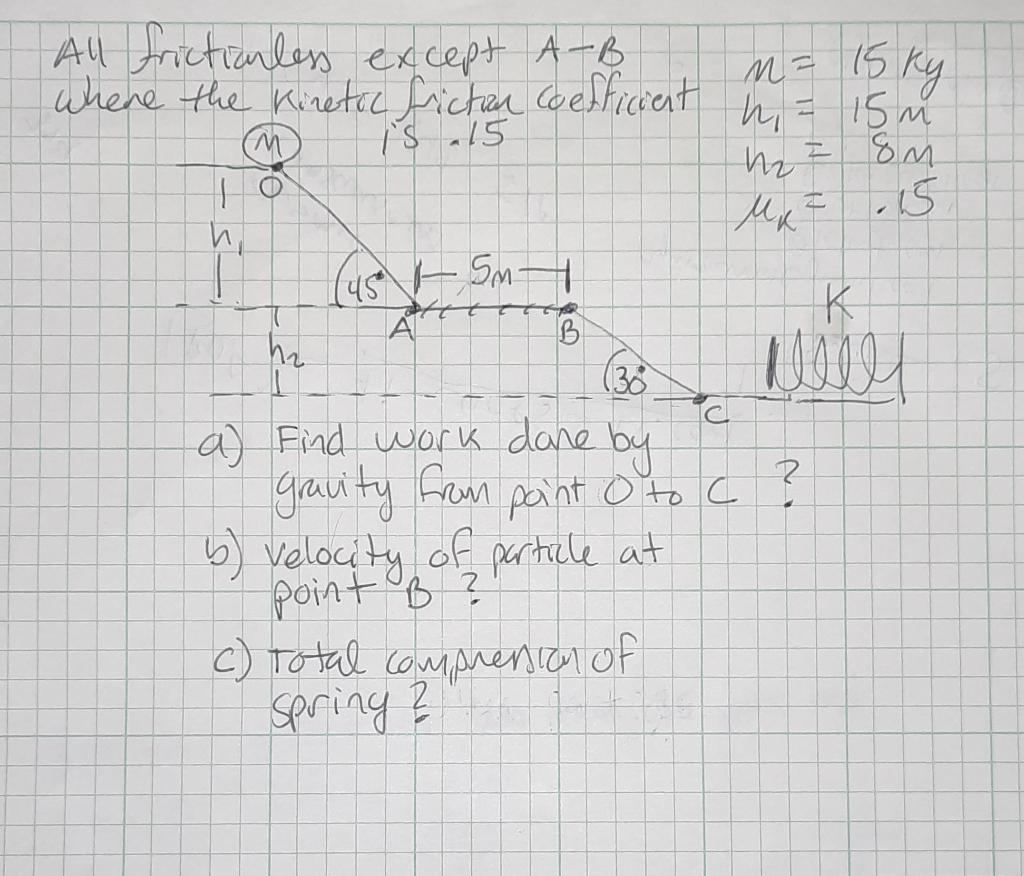 All frictionless except A-B
where the kinetic friction coefficient
is .15
M = 15 kg
h1 = 15 m
h2 = 8 m
μk = .15
M
O
h1
45°
5m
A
B
h2
30°
C
K
a) Find work done by
gravity from point O to C ?
b) velocity of particle at
point B ?
c) Total compression of
spring ?